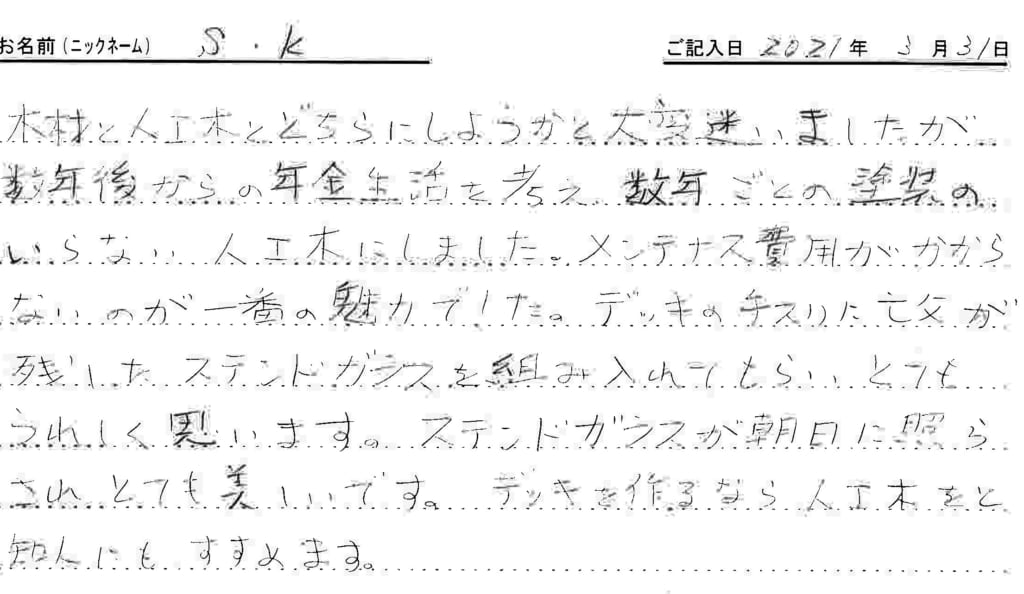 お名前(ニックネーム) S・K ご記入日 2021年 3月31日
木材と人工木とどちらにしようかと大変迷いましたが
数年後からの年金生活を考え 数年ごとの塗装の
いらない 人工木にしました。メンテナス費用がかから
ないのが一番の魅力でした。デッキの手スリに亡父が
残した ステンドガラスを組み入れてもらい とても
うれしく思います。ステンドガラスが朝日に照ら
され とても美しいです。デッキを作るなら人工木をと
知人にも すすめます。